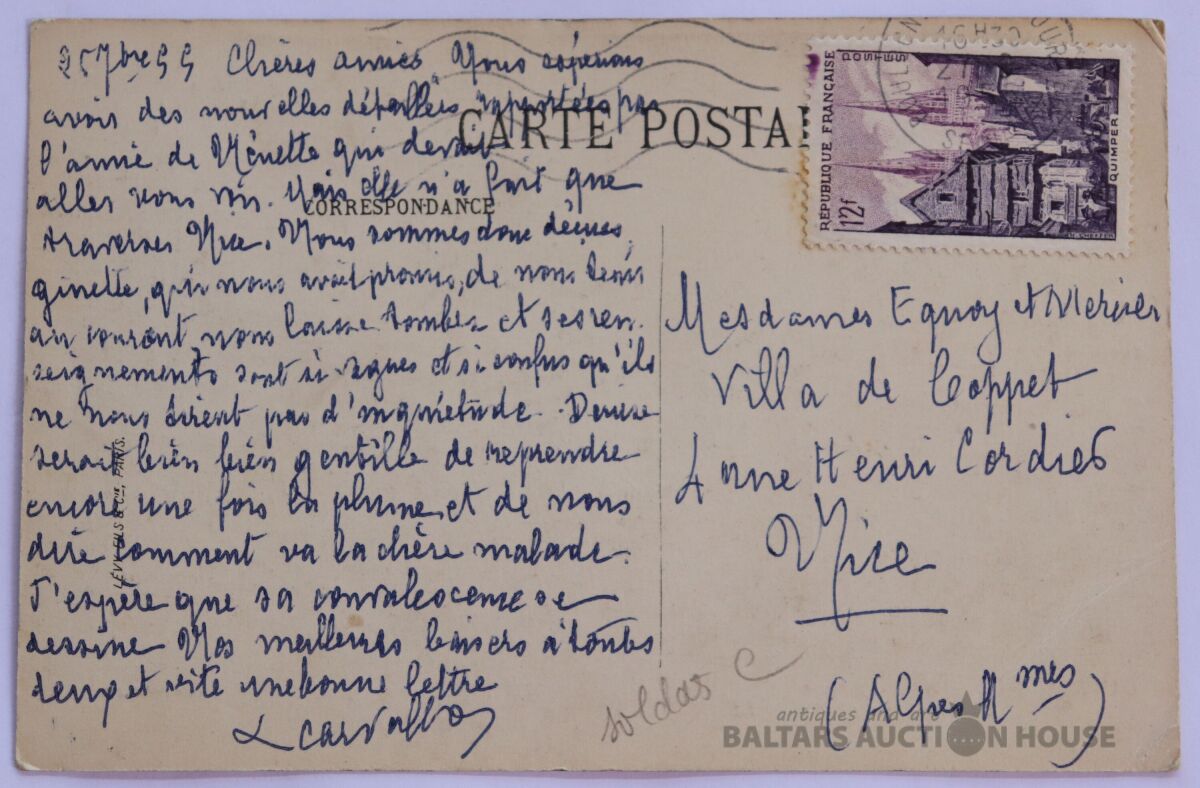 25 7bre 55 Chères amies Nous espérions
avoir des nouvelles détaillées rapportées par
l'amie de Ninette qui devait
aller vous voir. Mais elle n'a fait que
traverser Nice. Nous sommes donc déçues,
ginette, qui nous avait promis, de nous tenir
au courant nous laisse tomber et ses ren.
seignements sont si vagues et si confus qu'ils
ne nous tirent pas d'inquiétude. Denise
serait bien bien gentille de reprendre
encore une fois la plume et de nous
dire comment va la chère malade.
J'espère que sa convalescence se
dessine Nos meilleurs baisers à toutes
deux et vite une bonne lettre
L Carvallo
CARTE POSTAL
CORRESPONDANCE
LÉVY FILS & Cie, PARIS.
16H30
RÉPUBLIQUE FRANÇAISE
POSTES
12f
QUIMPER
Mesdames Equoy et Mercier
Villa de Coppet
4 rue Henri Cordier
Nice
(Alpes Mmes)
soldas C
antiques and art
BALTARS AUCTION HOUSE